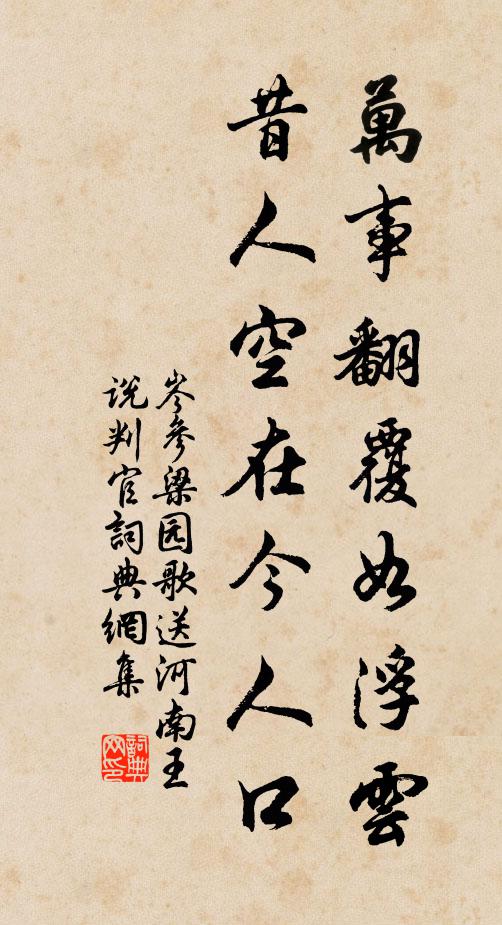 萬事翻覆如浮雲
昔人空在今人口
岑參梁园歌送河南王
说判官詞典網集
詞典
网印